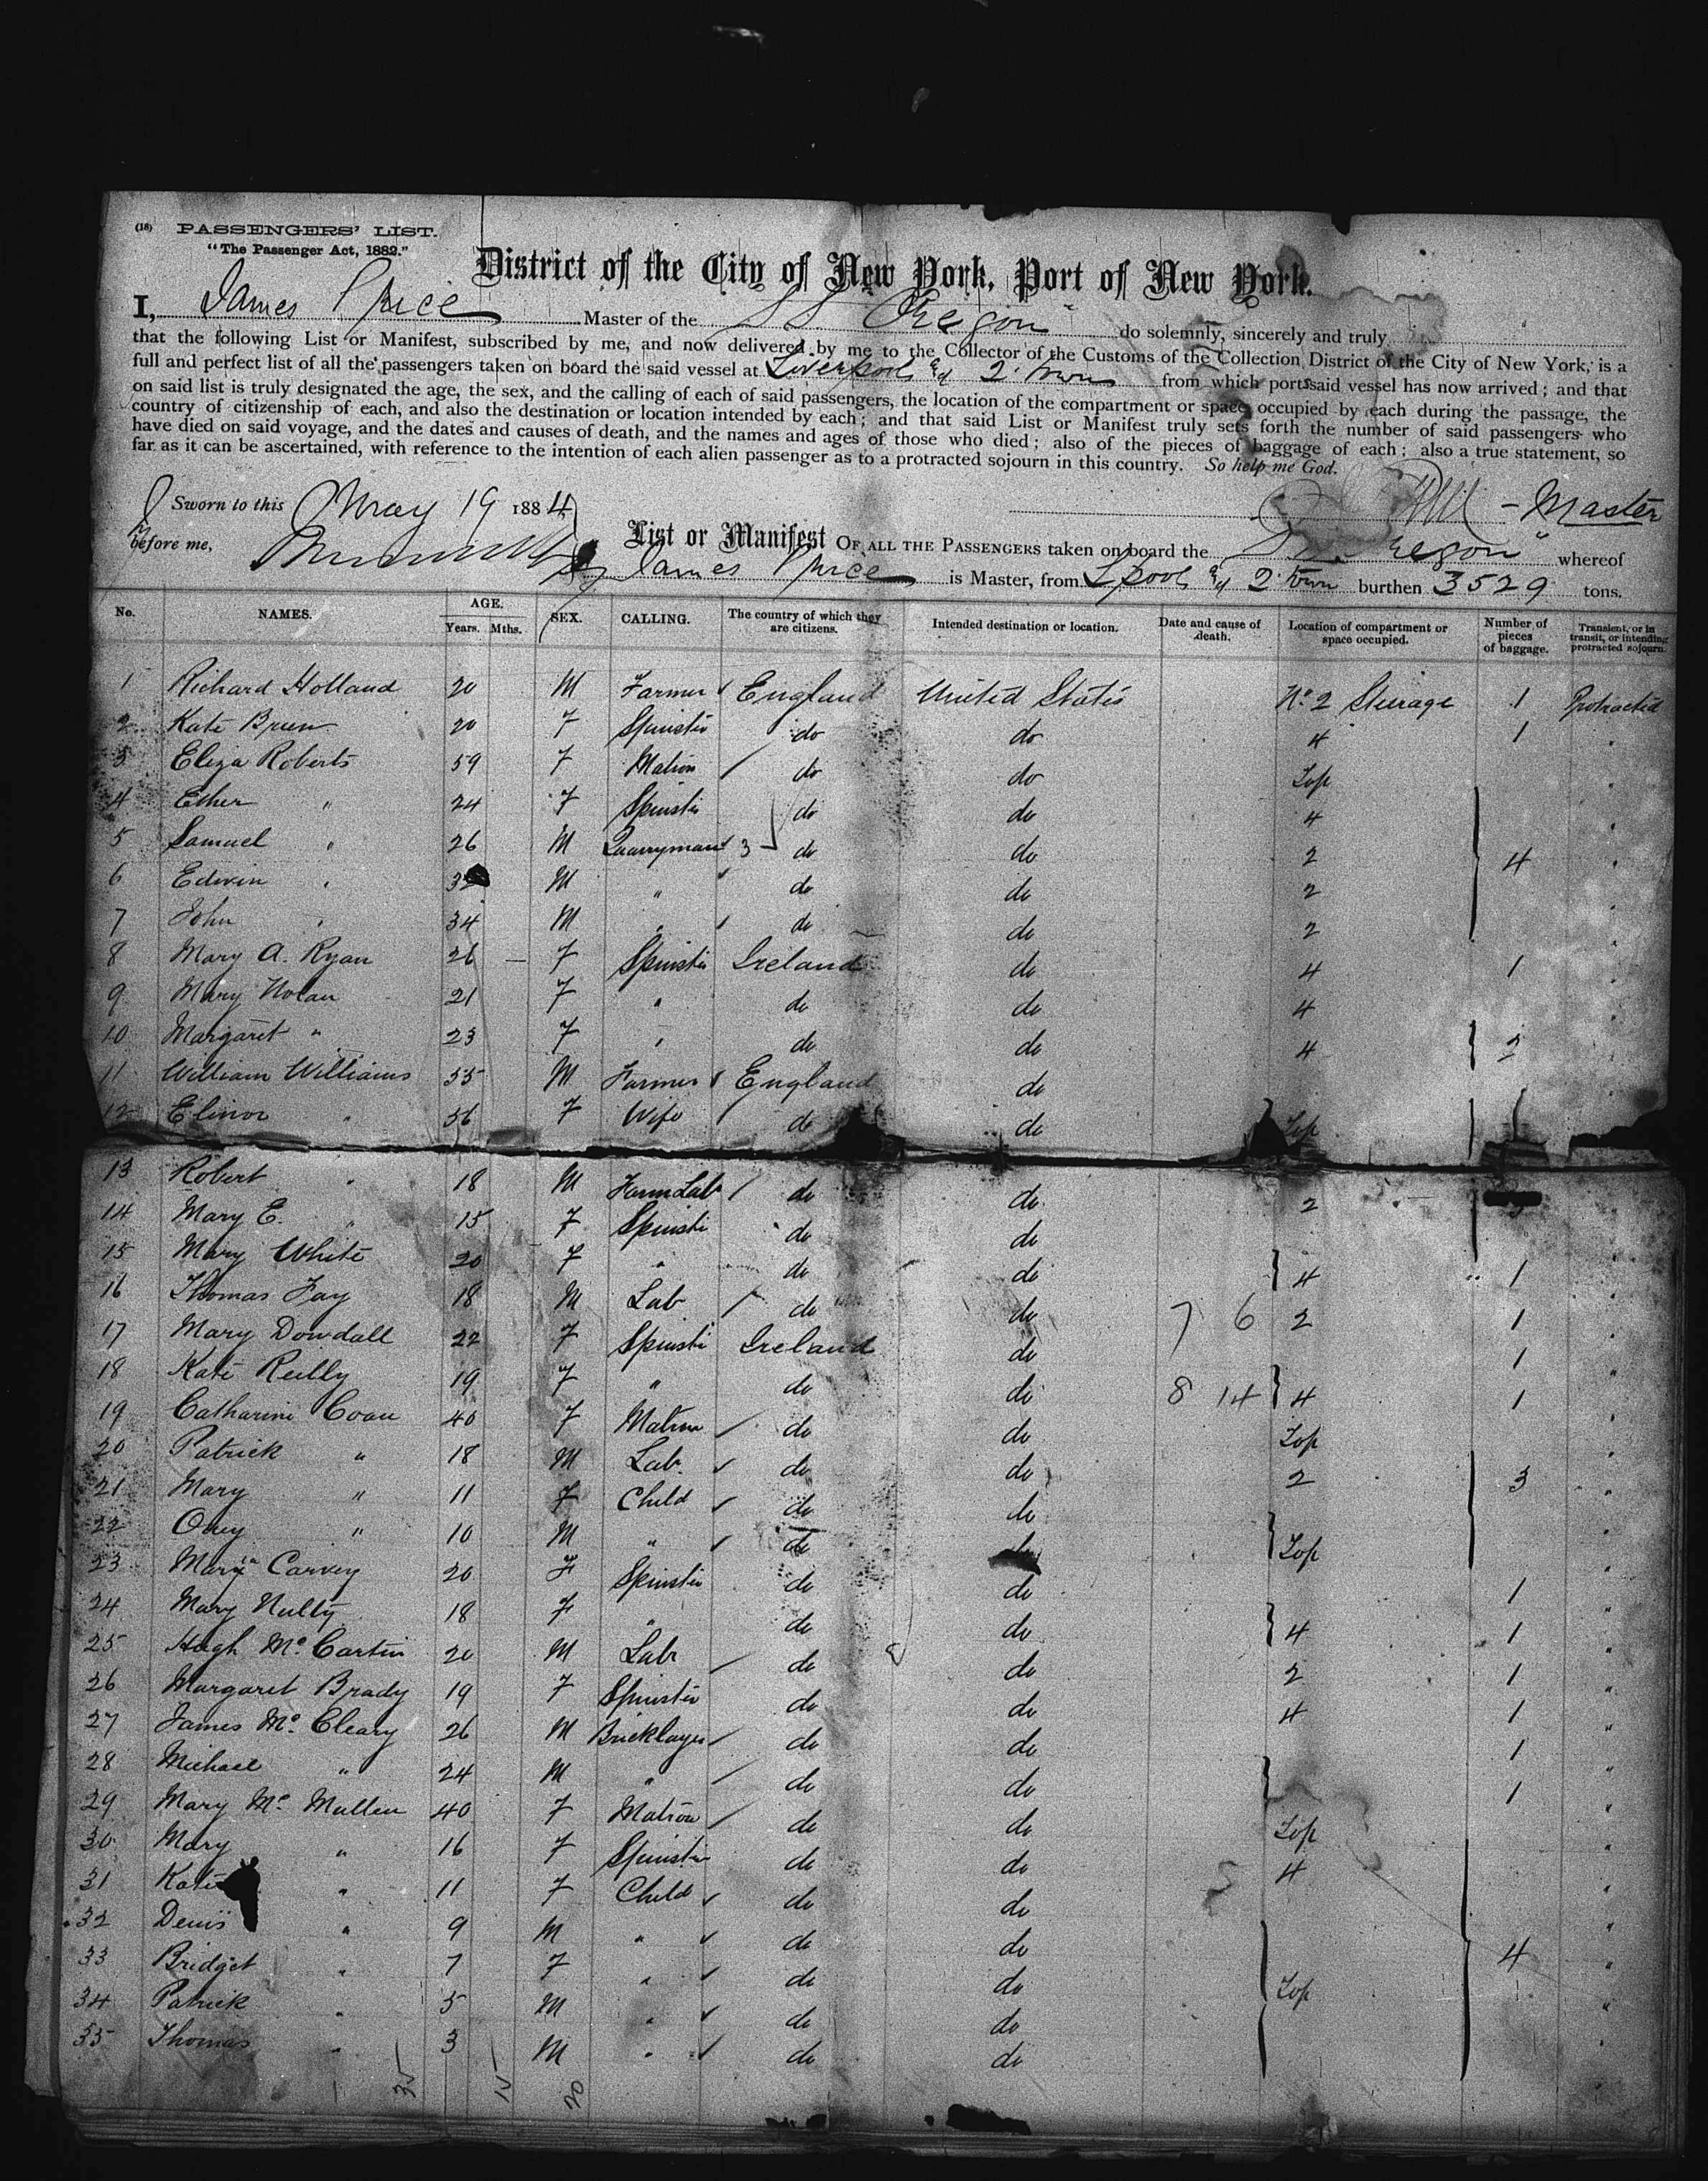 (18) PASSENGERS' LIST.
"The Passenger Act, 1882."
District of the City of New York, Port of New York.
I, James Price Master of the SS "Oregon" do solemnly, sincerely and truly
that the following List or Manifest, subscribed by me, and now delivered by me to the Collector of the Customs of the Collection District of the City of New York, is a
full and perfect list of all the passengers taken on board the said vessel at Liverpool & Q. town from which ports said vessel has now arrived; and that
on said list is truly designated the age, the sex, and the calling of each of said passengers, the location of the compartment or space occupied by each during the passage, the
country of citizenship of each, and also the destination or location intended by each; and that said List or Manifest truly sets forth the number of said passengers who
have died on said voyage, and the dates and causes of death, and the names and ages of those who died; also of the pieces of baggage of each; also a true statement, so
far as it can be ascertained, with reference to the intention of each alien passenger as to a protracted sojourn in this country. So help me God.
Sworn to this May 19 1884
- Master
before me,
List or Manifest OF ALL THE PASSENGERS taken on board the "Oregon" whereof
James Price is Master, from L'pool & Q. town burthen 3529 tons.
No. NAMES. AGE. Years. Mths. SEX. CALLING. The country of which they are citizens. Intended destination or location. Date and cause of death. Location of compartment or space occupied. Number of pieces of baggage. Transient, or in transit, or intending protracted sojourn.
1 Richard Holland 20 M Farmer England United States No. 2 Steerage 1 Protracted
2 Kate Bruen 20 F Spinster do do 4 1 "
3 Eliza Roberts 59 F Matron do do Top "
4 Esther " 24 F Spinster do do 4 "
5 Samuel " 26 M Quarryman 3 do do 2 4 "
6 Edwin " 32 M " do do 2 "
7 John " 34 M " do do 2 "
8 Mary A. Ryan 26 F Spinster Ireland do 4 1 "
9 Mary Nolan 21 F " do do 4 "
10 Margaret " 23 F " do do 4 2 "
11 William Williams 55 M Farmer England do
12 Elinor " 56 F Wife do do Top
13 Robert " 18 M Farm Lab do do 2
14 Mary E. " 15 F Spinster do do
15 Mary White 20 F " do do 4 1 "
16 Thomas Fay 18 M Lab do do 7 6 2 1 "
17 Mary Dowdall 22 F Spinster Ireland do 1 "
18 Kate Reilly 19 F " do do 8 14 4 1 "
19 Catharine Coan 40 F Matron do do Top "
20 Patrick " 18 M Lab. do do 2 3 "
21 Mary " 11 F Child do do "
22 Oney " 10 M " do do Top "
23 Maria Carvey 20 F Spinster do do 1 "
24 Mary Nulty 18 F " do do 4 1 "
25 Hugh McCartin 20 M Lab do do 2 1 "
26 Margaret Brady 19 F Spinster do do 4 1 "
27 James McCleary 26 M Bricklayer do do 1 "
28 Michael " 24 M " do do 1 "
29 Mary McMullen 40 F Matron do do Top "
30 Mary " 16 F Spinster do do 4 "
31 Kate " 11 F Child do do "
32 Denis " 9 M " do do 4 "
33 Bridget " 7 F " do do Top "
34 Patrick " 5 M " do do "
35 Thomas " 3 M " do do "
35 15 20